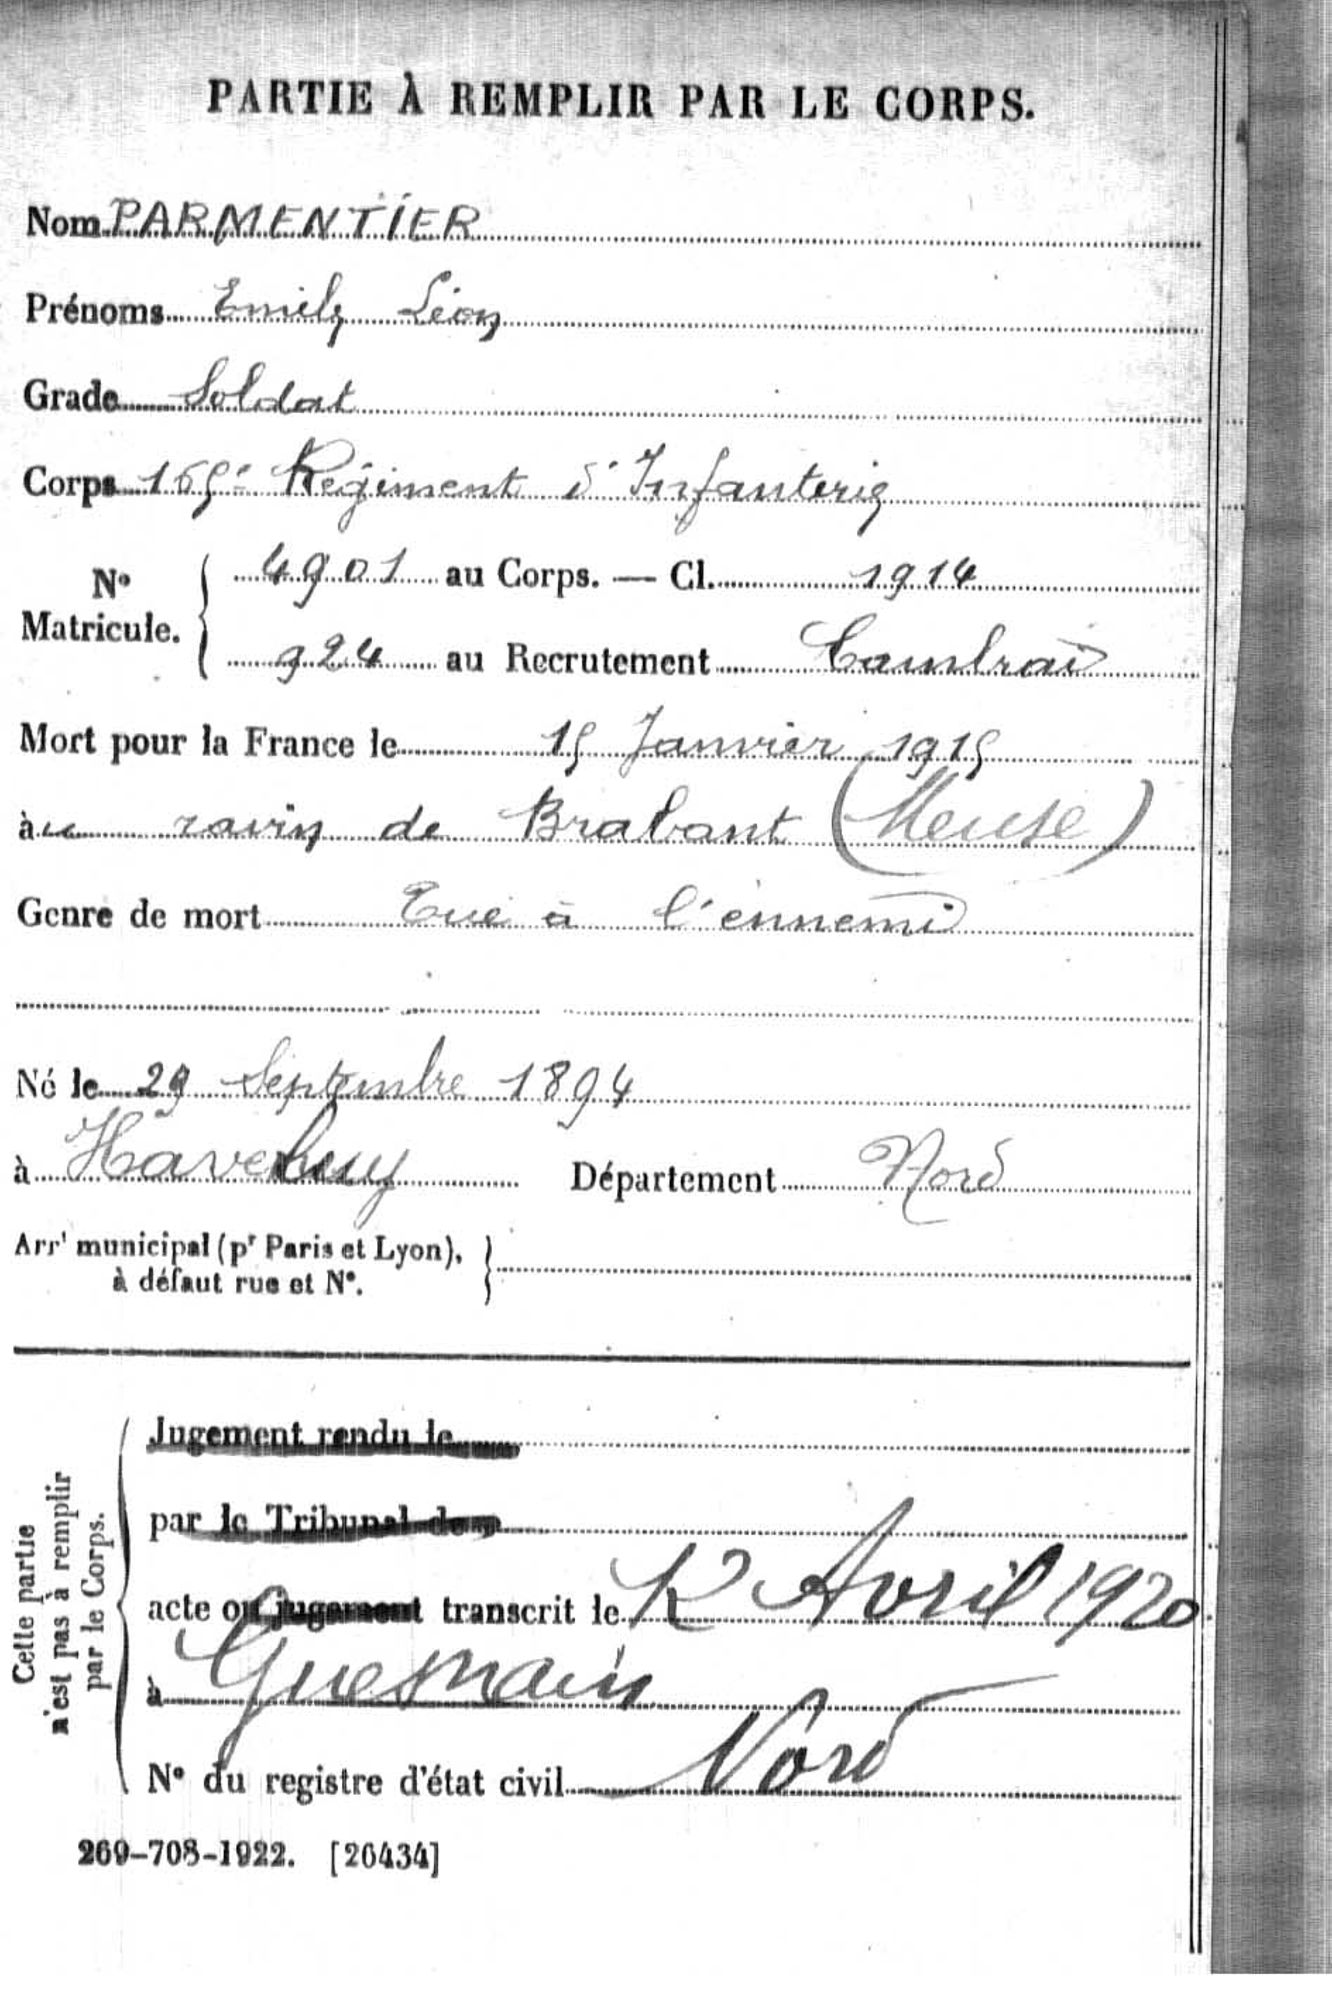 PARTIE À REMPLIR PAR LE CORPS.
Nom PARMENTIER
Prénoms Emile Léon
Grade Soldat
Corps 165e Régiment d'Infanterie
N° Matricule. 4901 au Corps. — Cl. 1914
924 au Recrutement Cambrai
Mort pour la France le 15 Janvier 1915
au ravin de Brabant (Meuse)
Genre de mort Tué à l'ennemi
Né le 29 Septembre 1894
à Haverluy Département Nord
Arrt municipal (pr Paris et Lyon), à défaut rue et N°.
Cette partie n'est pas à remplir par le Corps.
Jugement rendu le
par le Tribunal de
acte ou jugement transcrit le 12 Avril 1920
à Guesnain
Nord
N° du registre d'état civil
269-708-1922. [26434]